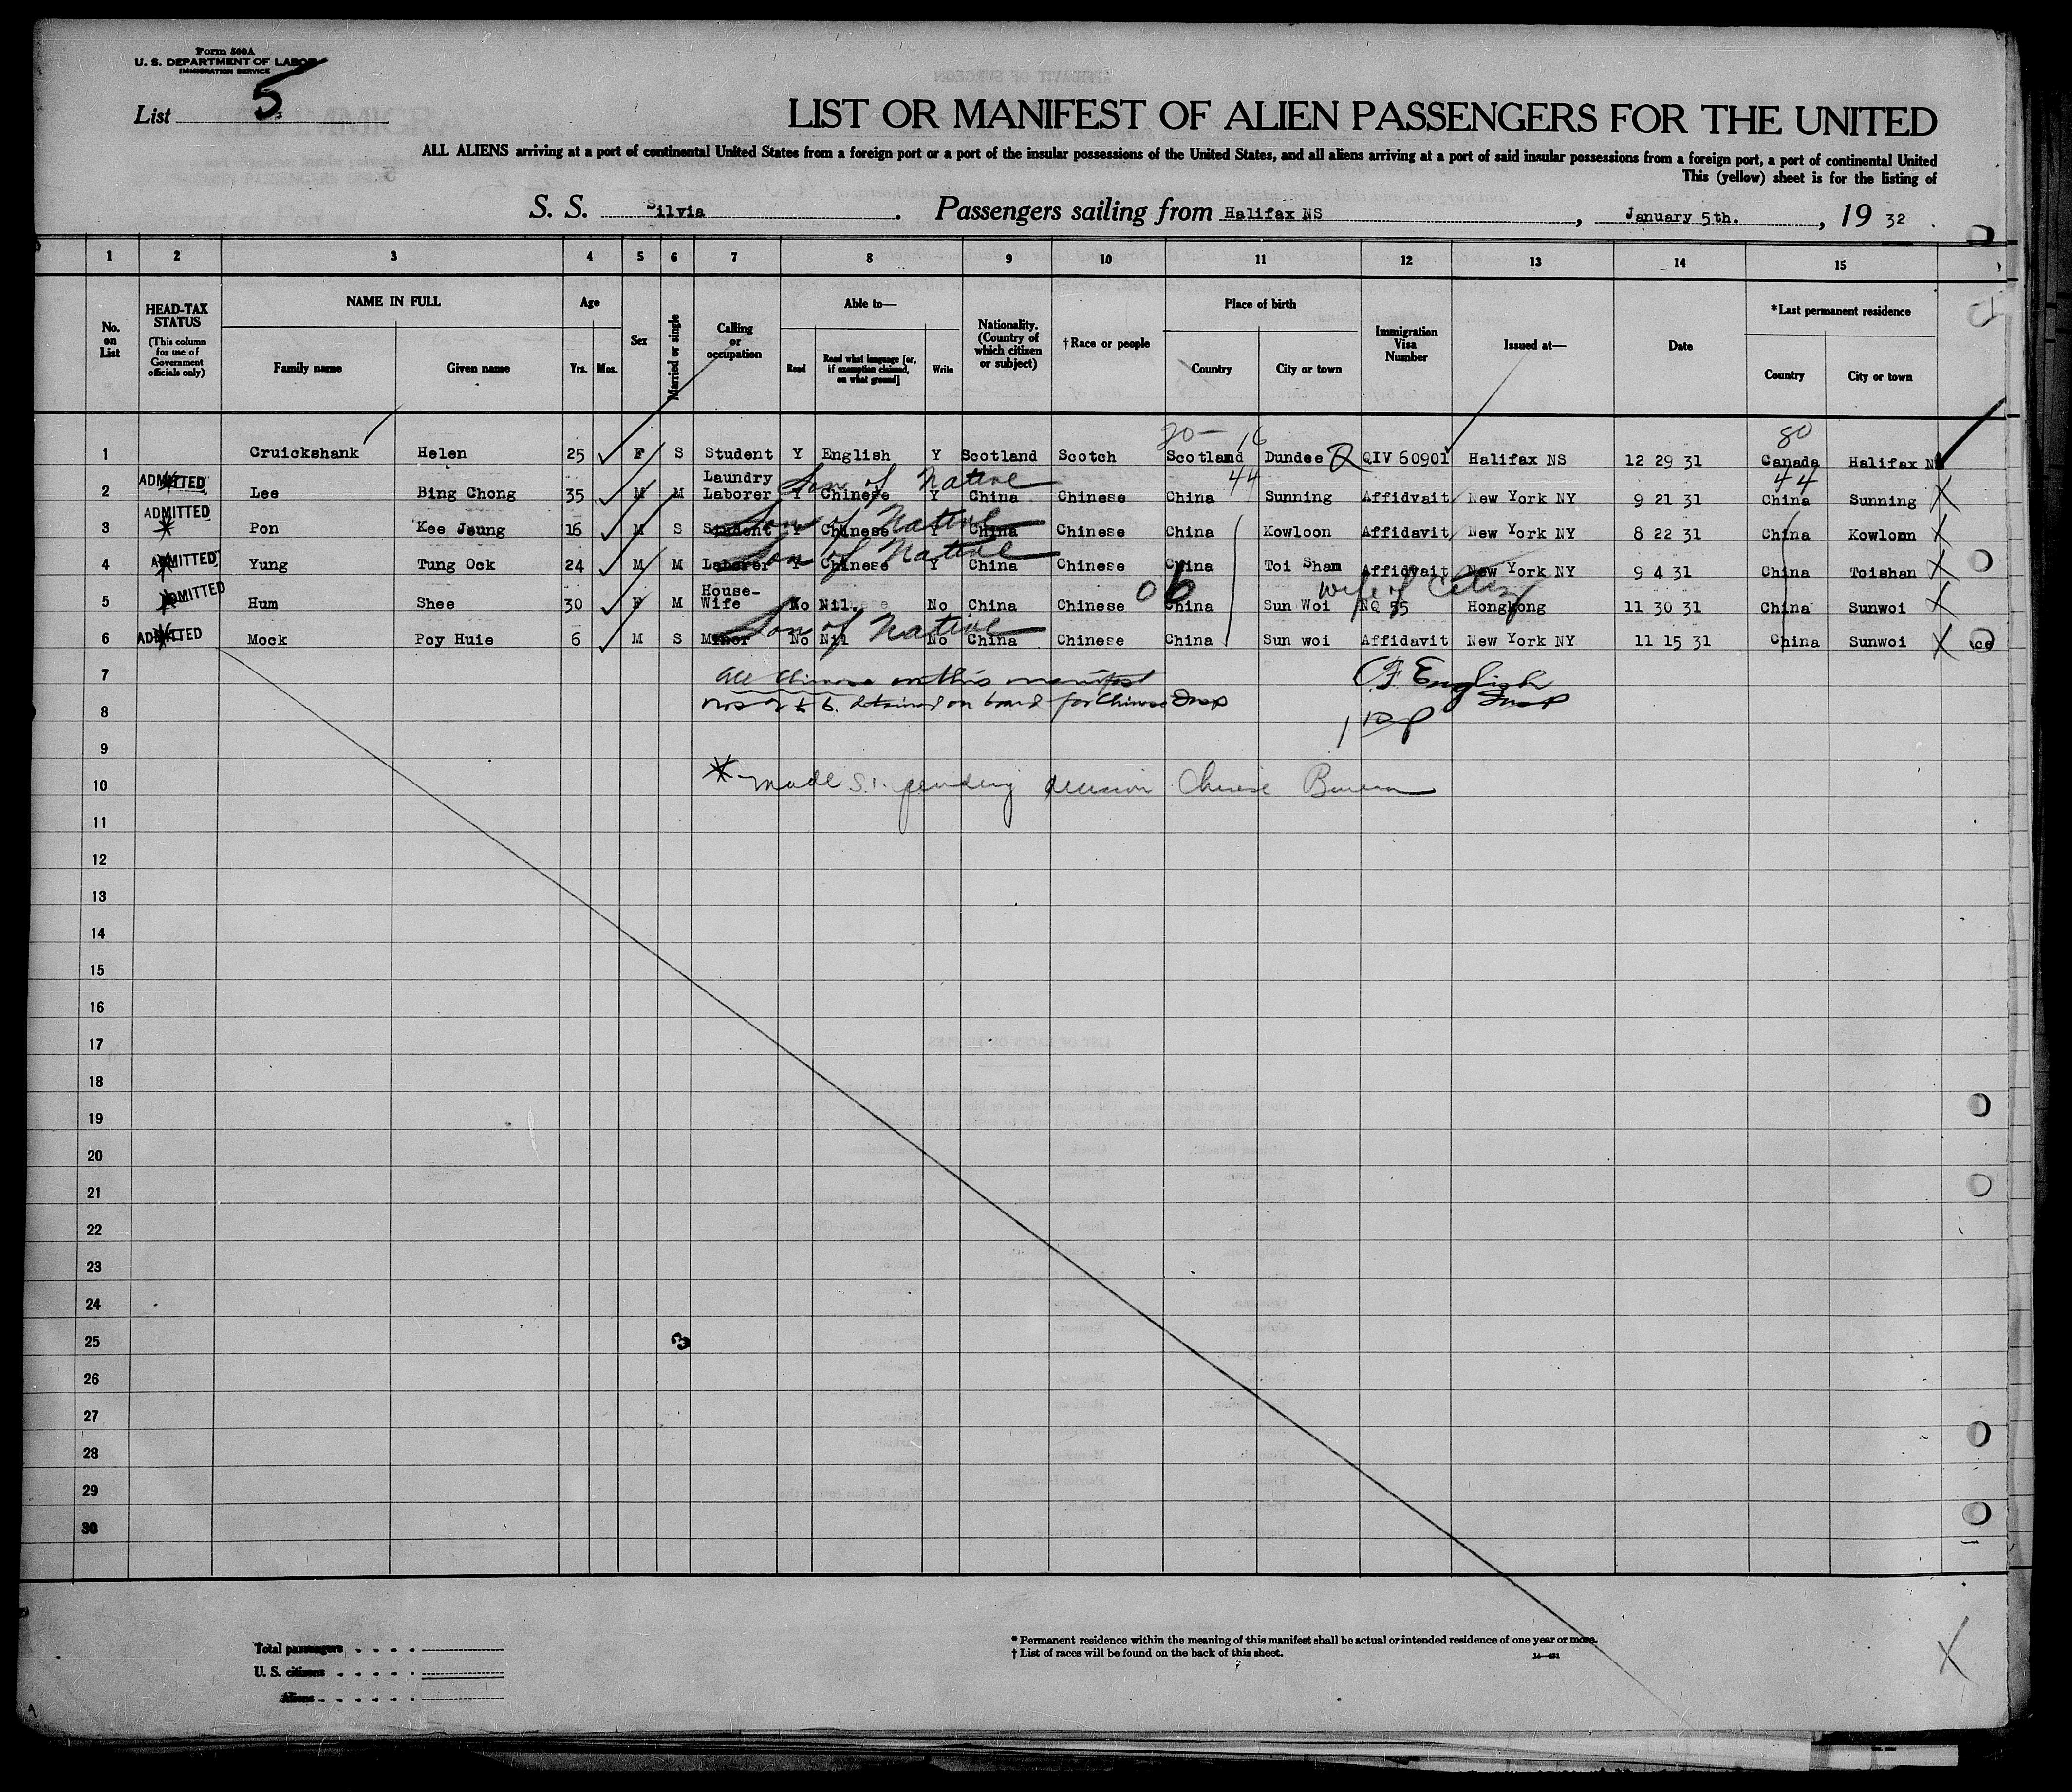 Form 500A
U. S. DEPARTMENT OF LABOR
IMMIGRATION SERVICE
List 5
LIST OR MANIFEST OF ALIEN PASSENGERS FOR THE UNITED
ALL ALIENS arriving at a port of continental United States from a foreign port or a port of the insular possessions of the United States, and all aliens arriving at a port of said insular possessions from a foreign port, a port of continental United
This (yellow) sheet is for the listing of
S. S. Silvia. Passengers sailing from Halifax NS, January 5th., 19 32.
1 2 3 4 5 6 7 8 9 10 11 12 13 14 15
No. on List
HEAD-TAX STATUS (This column for use of Government officials only)
NAME IN FULL
Family name Given name
Age
Yrs. Mos.
Sex
Married or single
Calling or occupation
Able to—
Read Read what language [or, if exemption claimed, on what ground] Write
Nationality. (Country of which citizen or subject)
†Race or people
Place of birth
Country City or town
Immigration Visa Number
Issued at—
Date
*Last permanent residence
Country City or town
20— 16 80
1 Cruickshank Helen 25 F S Student Y English Y Scotland Scotch Scotland Dundee QIV 60901 Halifax NS 12 29 31 Canada Halifax NS
Son of Native 44 44
2 ADMITTED Lee Bing Chong 35 M M Laundry Laborer Y Chinese Y China Chinese China Sunning Affidvait New York NY 9 21 31 China Sunning X
Son of Native
3 ADMITTED Pon Kee Jeung 16 M S Student Y Chinese Y China Chinese China Kowloon Affidavit New York NY 8 22 31 China Kowloon X
Son of Native
4 ADMITTED Yung Tung Ock 24 M M Laborer Y Chinese Y China Chinese China Toi Sham Affidvait New York NY 9 4 31 China Toishan X
06 Wife of Citizen
5 ADMITTED Hum Shee 30 F M House-Wife No Nil. No China Chinese China Sun Woi NQ 55 Hongkong 11 30 31 China Sunwoi X
Son of Native
6 ADMITTED Mock Poy Huie 6 M S Minor No Nil No China Chinese China Sun woi Affidavit New York NY 11 15 31 China Sunwoi X ce
7 All Chinese on this manifest English
8 Nos 2 to 6. detained on board for Chinese Insp Insp
9
10 * made S.I. pending decision Chinese Bureau
11
12
13
14
15
16
17
18
19
20
21
22
23
24
25 3
26
27
28
29
30
Total passengers
U. S. citizens
Aliens
* Permanent residence within the meaning of this manifest shall be actual or intended residence of one year or more.
† List of races will be found on the back of this sheet.
X